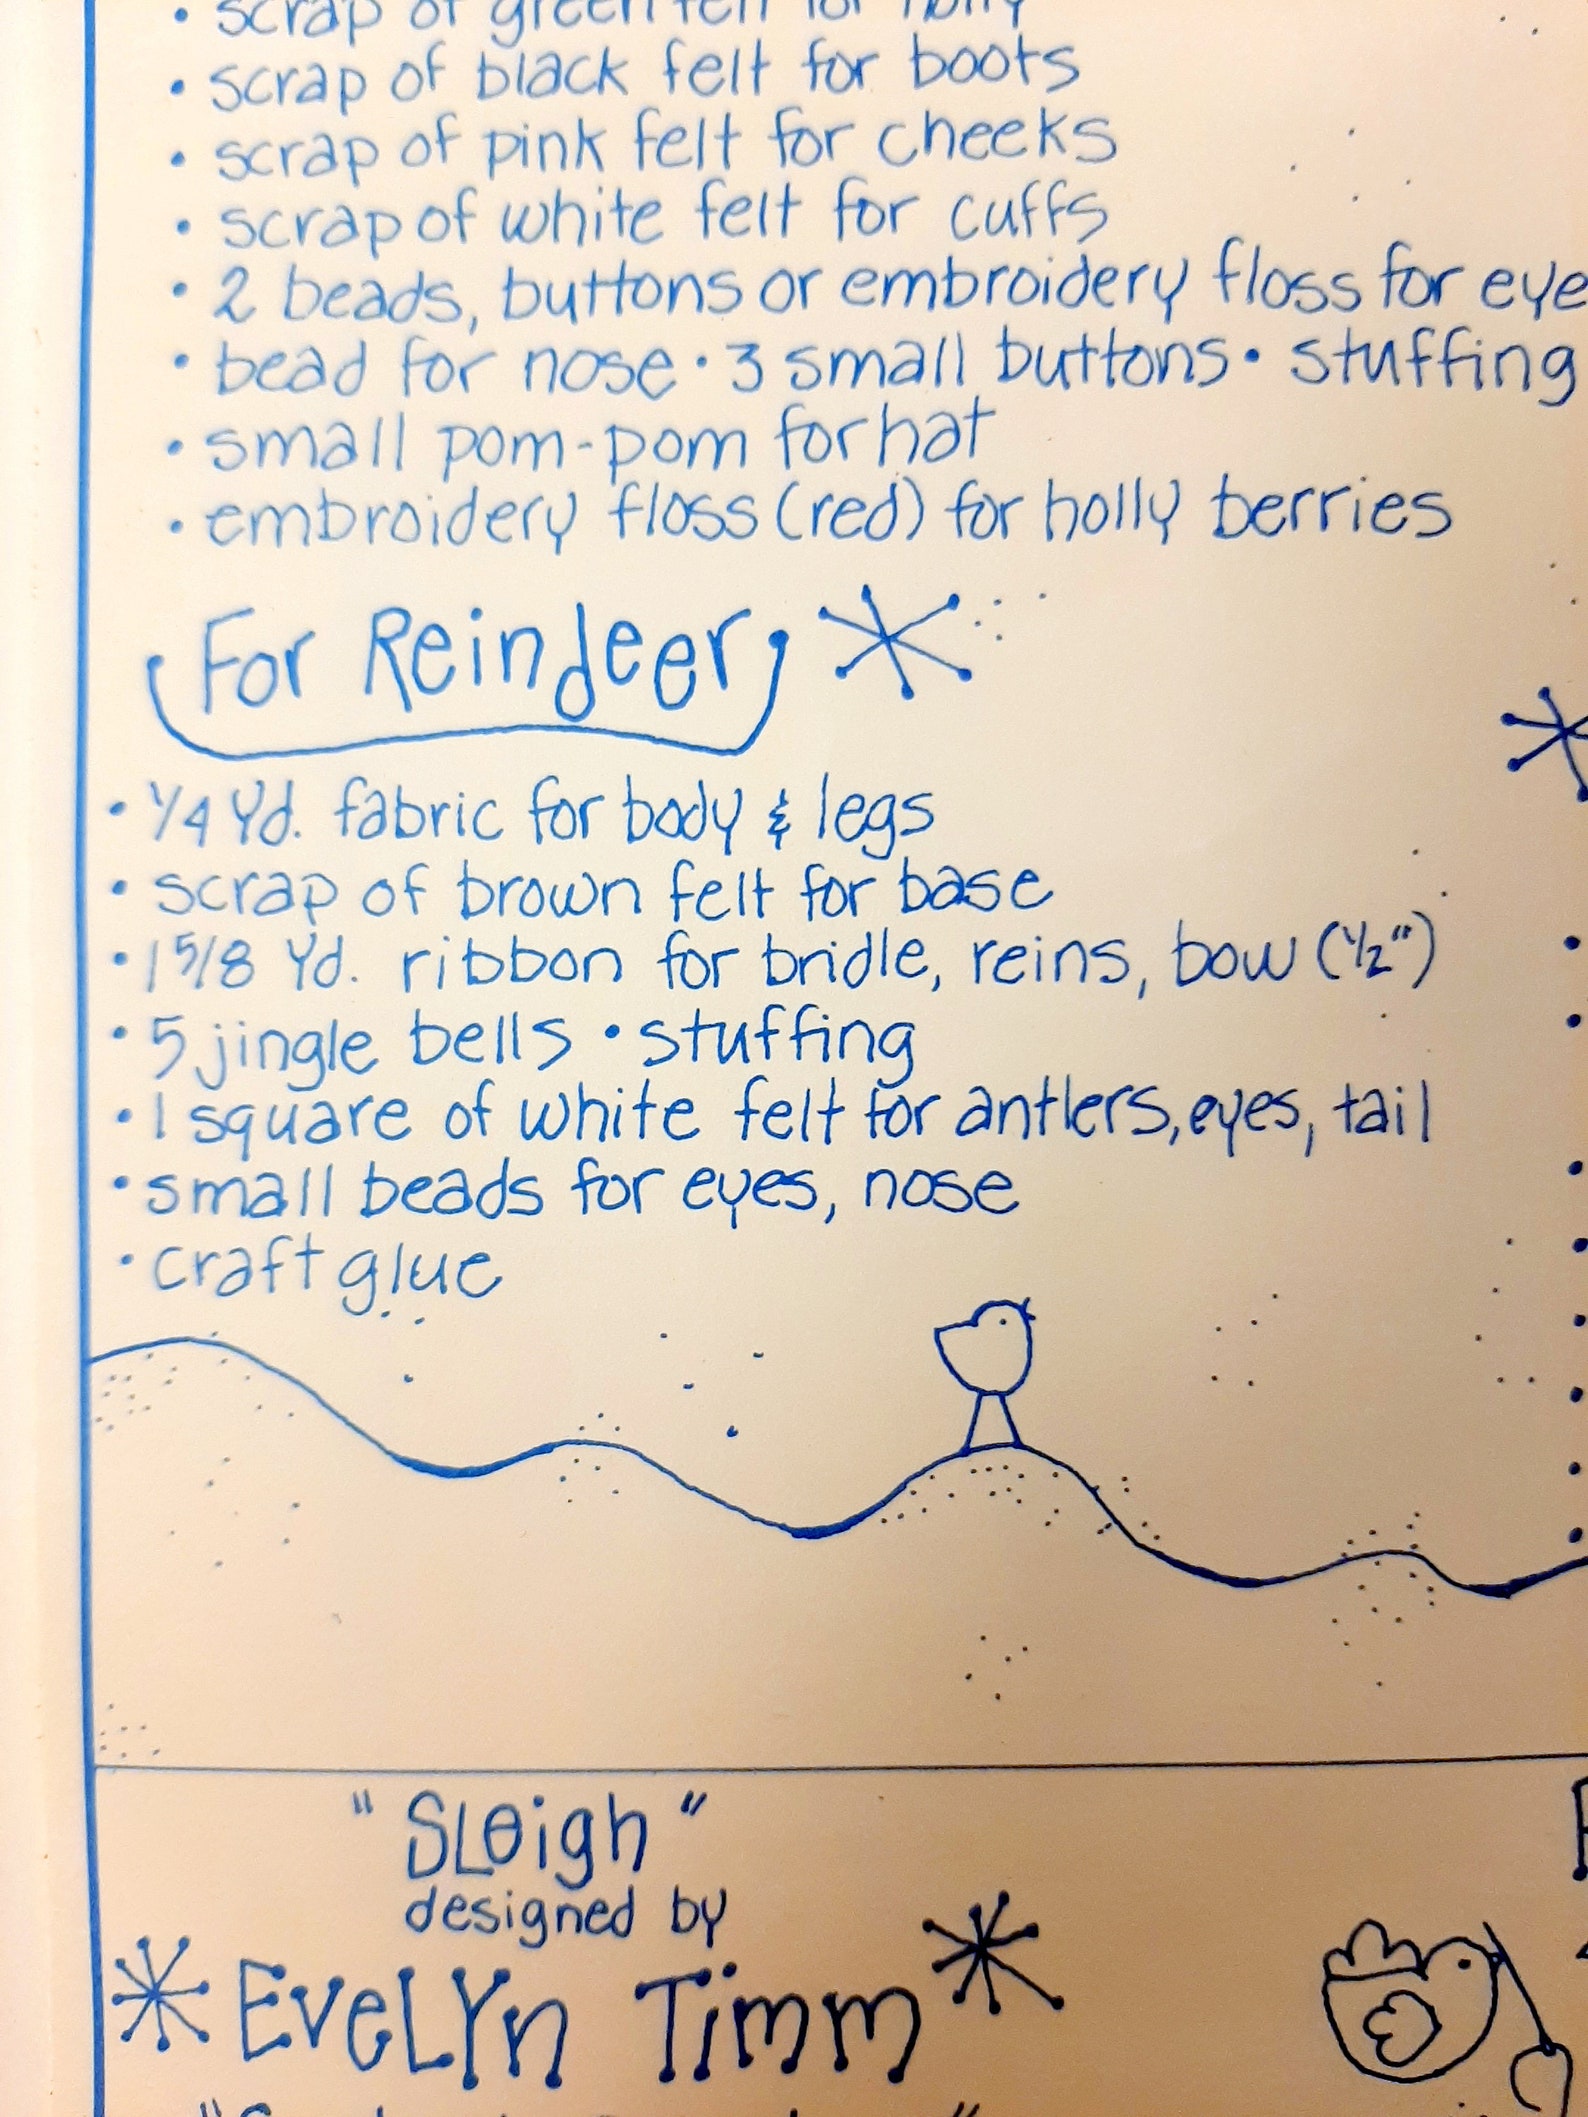 • scrap of green felt for holly
• scrap of black felt for boots
• scrap of pink felt for cheeks
• scrap of white felt for cuffs
• 2 beads, buttons or embroidery floss for eye
• bead for nose • 3 small buttons • stuffing
• small pom-pom for hat
• embroidery floss (red) for holly berries
For Reindeer
• 1/4 Yd. fabric for body & legs
• scrap of brown felt for base
• 1 5/8 Yd. ribbon for bridle, reins, bow (1/2")
• 5 jingle bells • stuffing
• 1 square of white felt for antlers, eyes, tail
• small beads for eyes, nose
• craft glue
"SLeigh"
designed by
EveLYn Timm